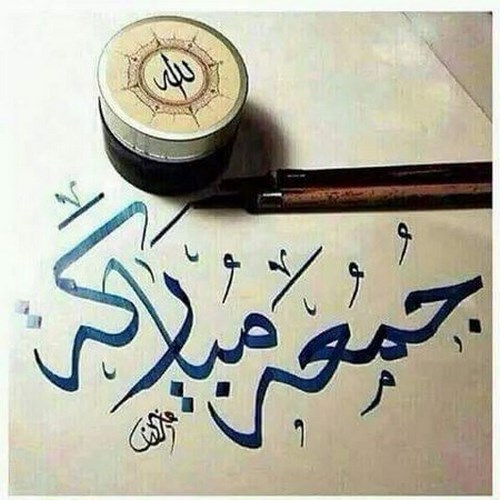 الله
جُمُعَة مُبَارَكَة